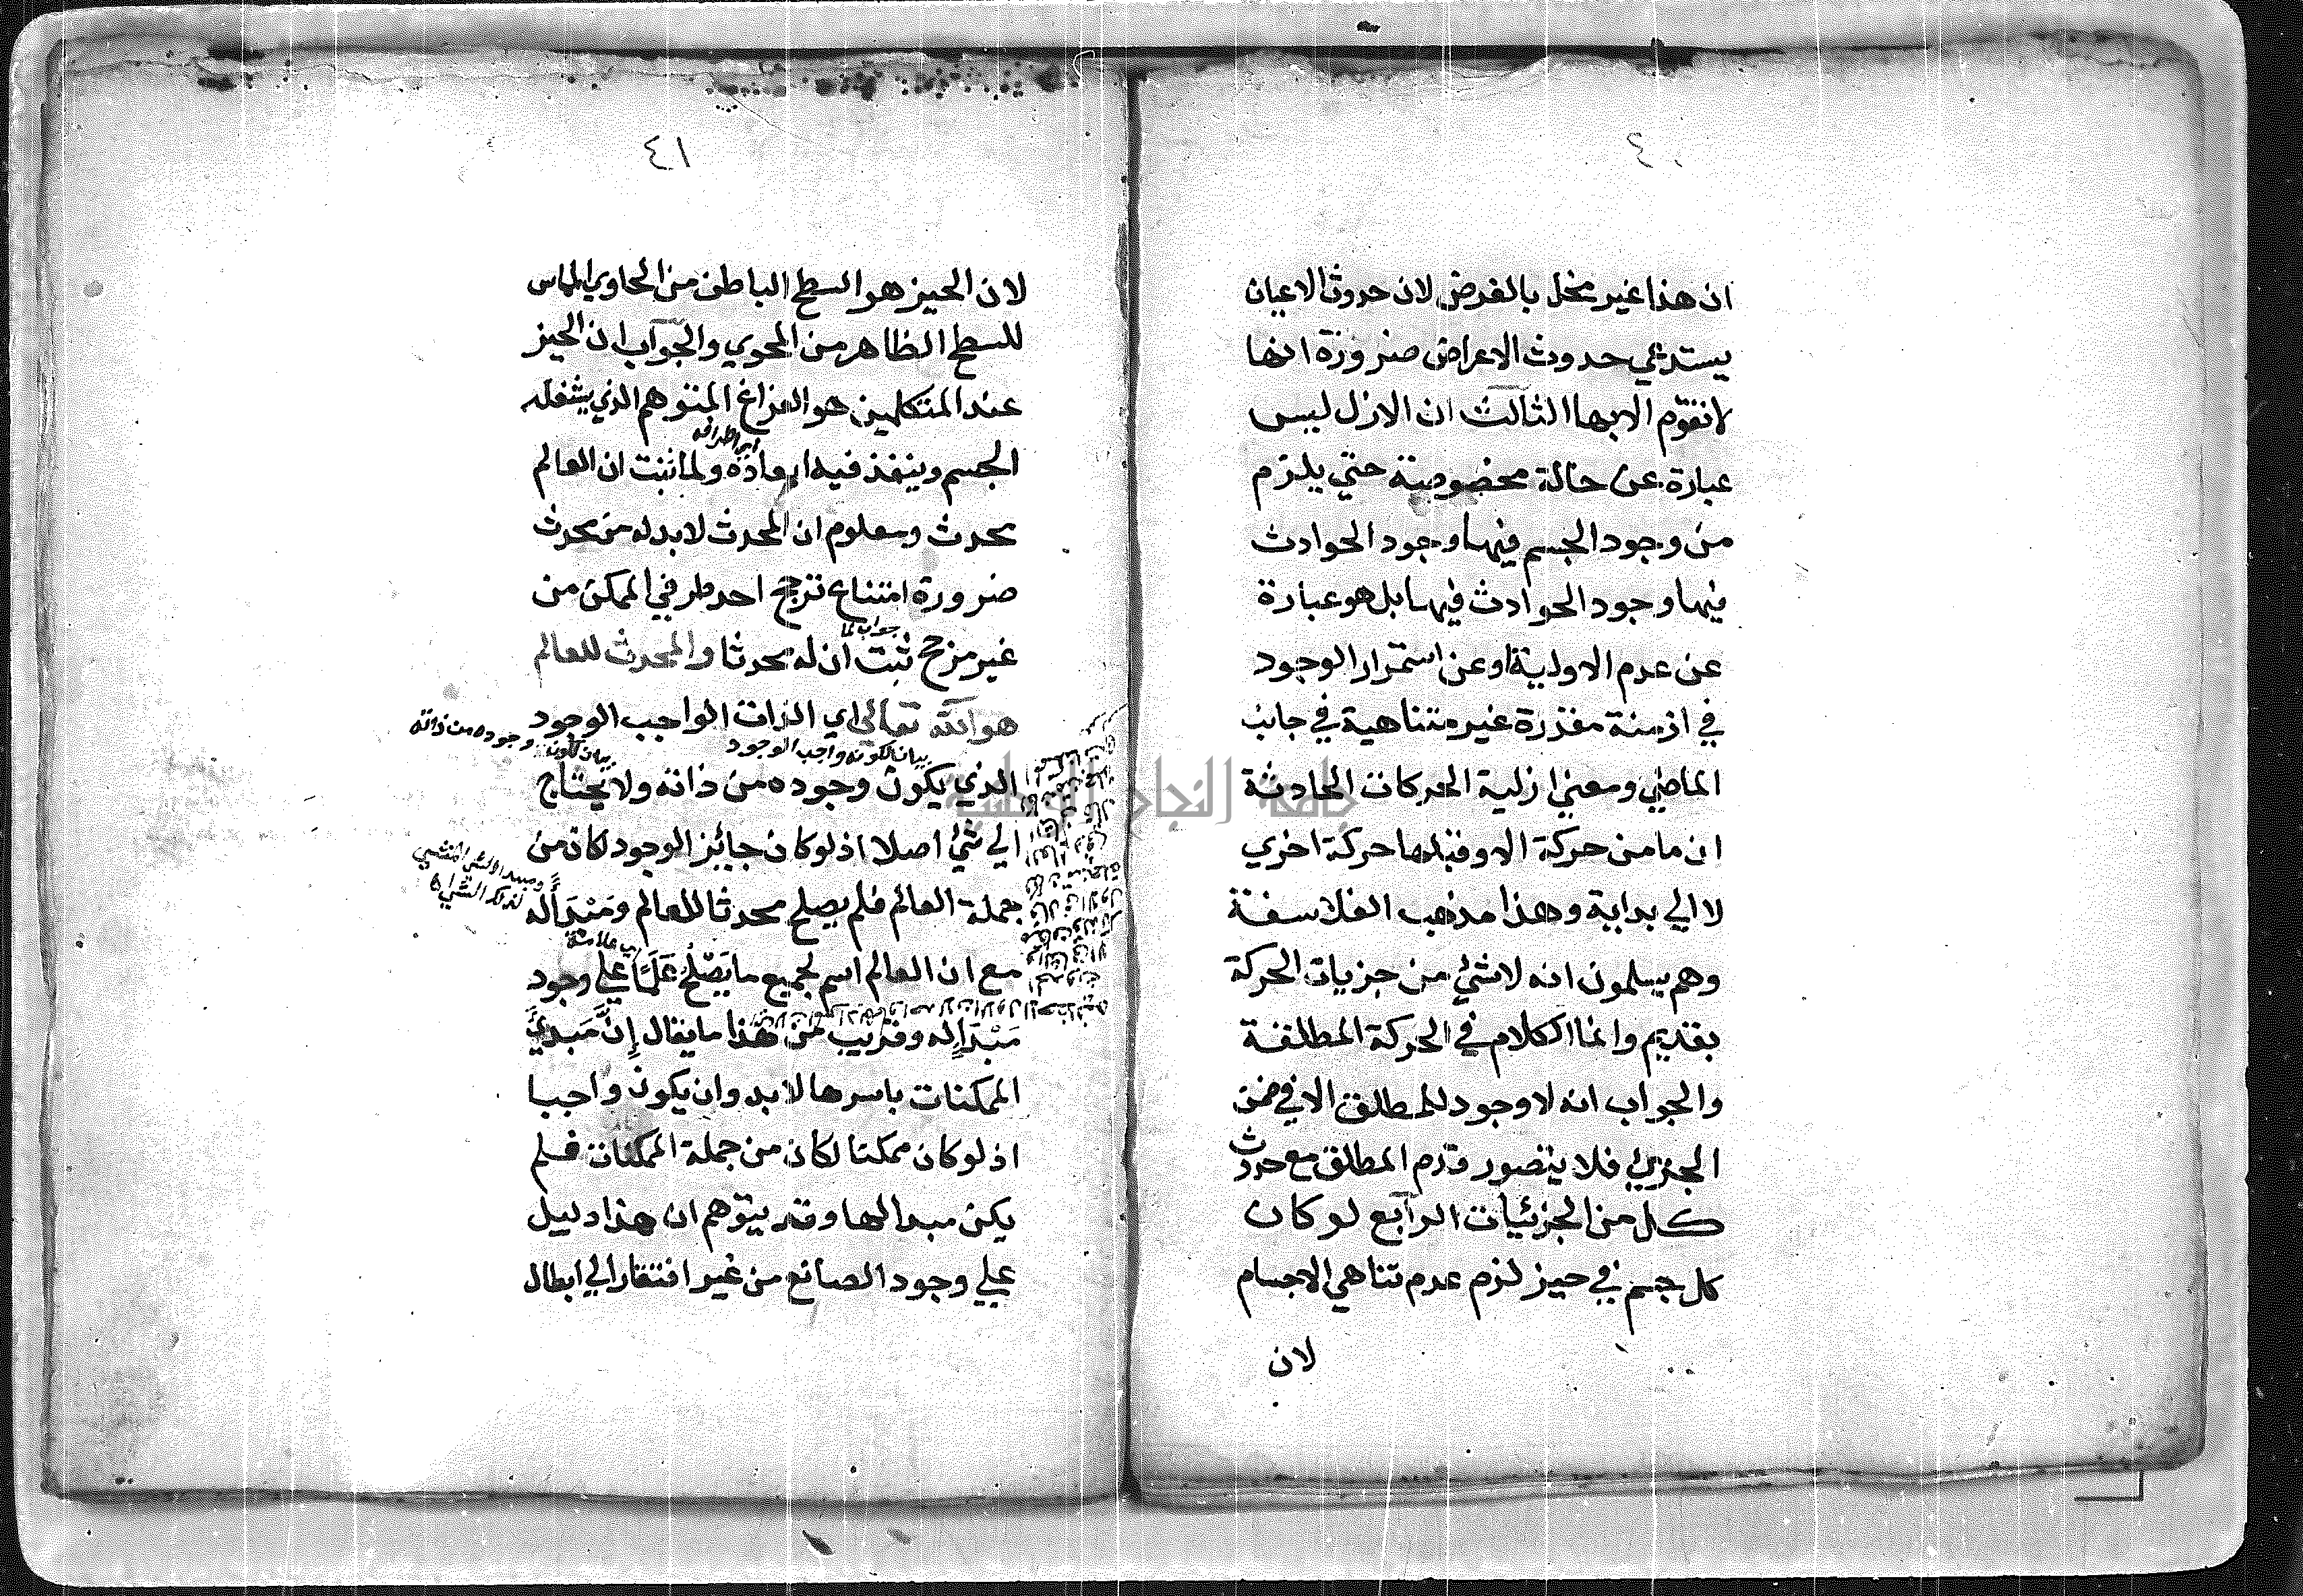 ٤٠
ان هذا غير مخل بالغرض لان حدوث الاعيان
يستدعي حدوث الاعراض ضرورة انها
لا تقوم الا بها الثالث ان الازل ليس
عبارة عن حالة مخصوصة حتي يلزم
من وجود الجسم فيها وجود الحوادث
فيها وجود الحوادث فيها بل هو عبارة
عن عدم الاولية او عن استمرار الوجود
في ازمنة مقدرة غير متناهية في جانب
الماضي ومعني ازلية الحركات الحادثة
ان ما من حركة الا وقبلها حركة اخري
لا الي بداية وهذا مذهب الفلاسفة
وهم يسلمون انه لا شئ من جزيات الحركة
بقديم وانما الكلام في الحركة المطلقة
والجواب انه لا وجود للمطلق الا في ضمن
الجزئي فلا يتصور قدم المطلق مع حدوث
كل من الجزئيات الرابع لو كان
كل جسم في حيز لزم عدم تناهي الاجسام
لان
٤١
لان الحيز هو السطح الباطن من الحاوي المماس
للسطح الظاهر من المحوي والجواب ان الحيز
عند المتكلمين هو الفراغ المتوهم الذي يشغله
اي اطرافه
الجسم وينفذ فيه ابعاده ولما ثبت ان العالم
محدث ومعلوم ان المحدث لا بد له من محدث
ضرورة امتناع ترجح احد طرفي الممكن من
جواب لما
غير مرجح ثبت ان له محدثا والمحدث للعالم
هو الله تعالي اي الذات الواجب الوجود
بيان لكونه واجب الوجود
بيان لكون وجوده من ذاته
الذي يكون وجوده من ذاته ولا يحتاج
الي شئ اصلا اذ لو كان جايز الوجود لكان من
ومبدا الشي المنتهي
لذلك الشي اه
جملة العالم فلم يصلح محدثا للعالم ومَبْدَأً له
اي علامة
مع ان العالم اسم لجميع ما يَصْلُحُ عَلَمًا علي وجود
مَبْدَاٍ له وقريب من هذا ما يقال إِنَّ مَبدئَ
الممكنات باسرها لا بد وان يكون واجبا
اذ لو كان ممكنا لكان من جملة الممكنات فلم
يكن مبدا لها وقد يتوهم ان هذا دليل
علي وجود الصانع من غير افتقار الي ابطال
جامعة النجاح الوطنية